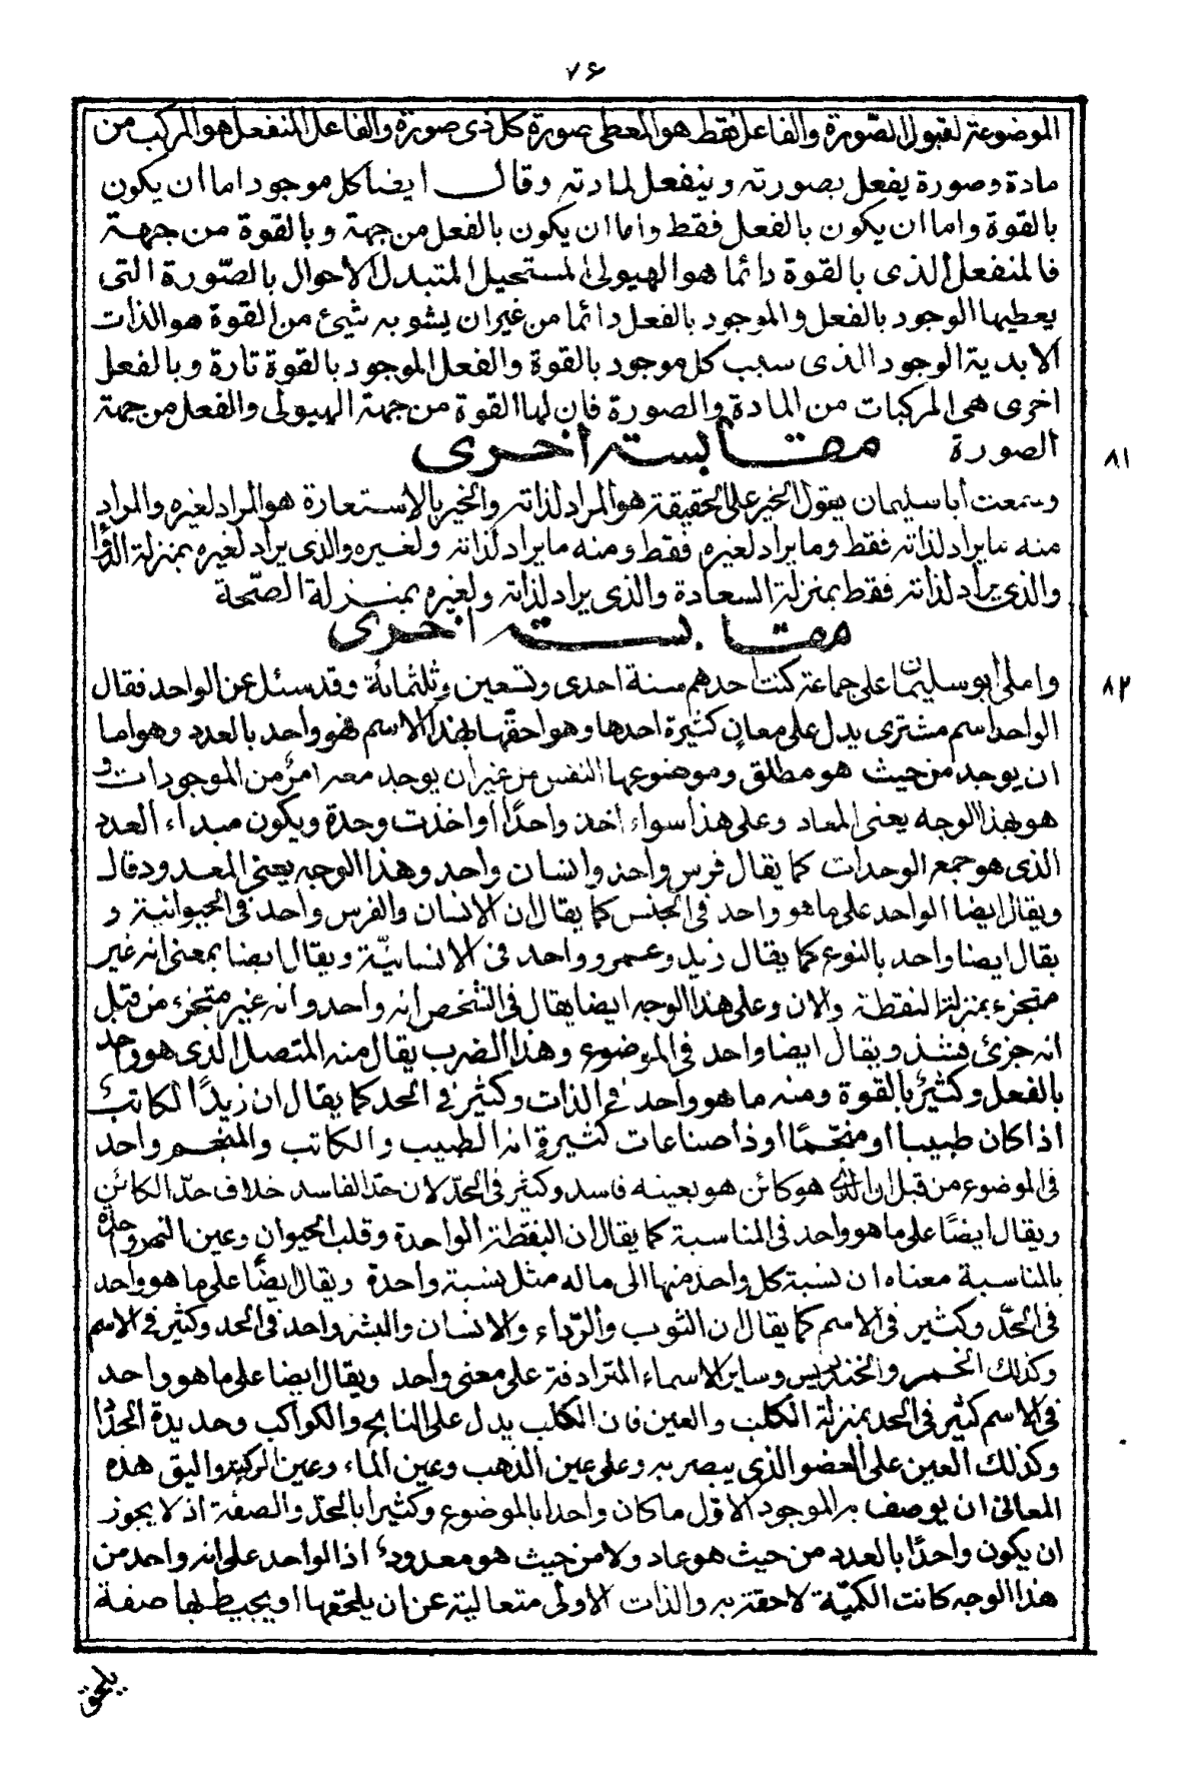 ٧۶
الموضوعة لقبول الصّورة والفاعل فقط هو المعطى صورة كل ذى صورة والفاعل المنفعل هو المركب من
مادة وصورة يفعل بصورته وينفعل لمادته وقال ايضا كل موجود اما ان يكون
بالقوة واما ان يكون بالفعل فقط واما ان يكون بالفعل من جهة وبالقوة من جهة
فالمنفعل الذى بالقوة دائما هو الهيولى المستحيل المتبدل الاحوال بالصّورة التى
يعطيها الوجود بالفعل والموجود بالفعل دائما من غير ان يشوبه شئ من القوة هو الذات
الابدية الوجود الذى سبب كل موجود بالقوة والفعل الموجود بالقوة تارة وبالفعل
اخرى هى المركبات من المادة والصورة فان لها القوة من جهة الهيولى والفعل من جهة
الصورة مقابسة اخرى
٨١
وسمعت أبا سليمان يقول الخير على الحقيقة هو المراد لذاته والخير بالاستعارة هو المراد لغيره والمراد
منه ما يراد لذاته فقط وما يراد لغيره فقط ومنه ما يراد لذاته ولغيره والذى يراد لغيره بمنزلة الدواء
والذى يراد لذاته فقط بمنزلة السعادة والذى يراد لذاته ولغيره بمنزلة الصّحة
مقابسة اخرى
٨٢
واملى أبو سليمان على جماعة كنت احدهم سنة احدى وتسعين وثلثمائة وقد سئل عن الواحد فقال
الواحد اسم مشترك يدل على معانٍ كثيرة احدها وهو احقّها بهذا الاسم هو واحد بالعدد وهو اما
ان يوجد من حيث هو مطلق وموضوعها النفس من غير ان يوجد معه امرٌ من الموجودات و
هو بهذا الوجه يعنى المعاد وعلى هذا سواء اخذ واحدًا او اخذت وحدة ويكون مبداء العدد
الذى هو جمع الوحدات كما يقال فرس واحد وانسان واحد وهذا الوجه يعنى المعدود قال
ويقال ايضا الواحد على ما هو واحد فى الجنس كما يقال ان الانسان والفرس واحد فى الحيوانية و
يقال ايضا واحد بالنوع كما يقال زيد وعمرو واحد فى الانسانيّة ويقال ايضا بمعنى انه غير
متجزء بمنزلة النقطة والان وعلى هذا الوجه ايضا يقال فى الشخص انه واحد وانه غير متجزء من قبل
انه جزئ ويقال ايضا واحد فى الموضوع وهذا الضرب يقال منه المتصل الذى هو واحد
بالفعل وكثيرٌ بالقوة ومنه ما هو واحد فى الذات وكثير فى الحد كما يقال ان زيدًا الكاتب
اذا كان طبيبا او منجّمًا او ذا صناعات كثيرةٍ انه الطبيب والكاتب والمنجم واحد
فى الموضوع من قبل ان الذى هو كائن هو بعينه فاسد وكثير فى الحدّ لان حدّ الفاسد خلاف حدّ الكائن
ويقال ايضًا على ما هو واحد فى المناسبة كما يقال ان النقطة الواحدة وقلب الحيوان وعين النهر واحدة
بالمناسبة معناه ان نسبة كل واحد منها الى ماله مثل نسبة واحدة ويقال ايضًا على ما هو واحد
فى الحدّ وكثير فى الاسم كما يقال ان الثوب والرّداء والانسان والبشر واحد فى الحد وكثير فى الاسم
وكذلك الخمر والخندريس وساير الاسماء المترادفة على معنى واحد ويقال ايضا على ما هو واحد
فى الاسم كثير فى الحد بمنزلة الكلب والعين فان الكلب يدل على النابح والكواكب وحديدة
وكذلك العين على العضو الذى يبصر به وعلى عين الذهب وعين الماء وعين الركبة واليق هذه
المعانى ان يوصف به الموجود الاوّل ما كان واحدا بالموضوع وكثيرا بالحدّ والصفة اذ لا يجوز
ان يكون واحدًا بالعدد من حيث هو عاد ولا من حيث هو معدود اذا الواحد على انه واحد من
هذا الوجه كانت الكميّة لاحقة به والذات الاولى متعالية عن ان يلحقها او يحيط لها صفة
يلحق